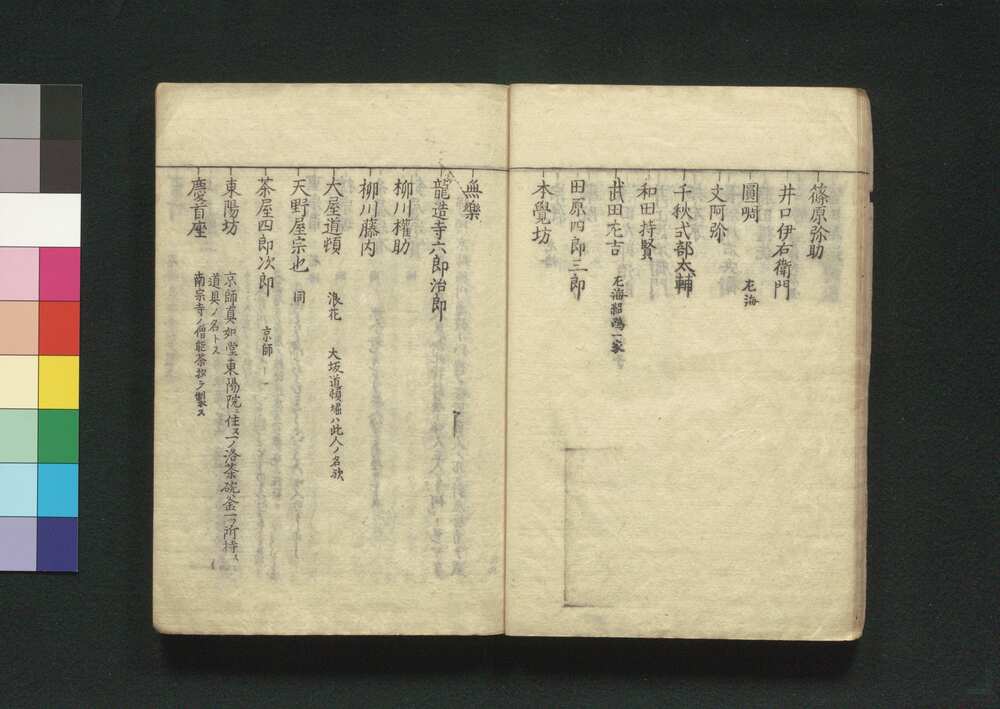 篠原弥助
井口伊右衛門
圓啁
文阿弥
千秋式部太輔
和田持賢
武田 吉 紹鴎一家
田原四郎三郎
本覺坊
無樂
龍造寺六郎治郎
柳川權助
柳川藤内
大屋道頓 浪花 大坂道頓堀ハ此人ノ名欤
天野屋宗也 同
茶屋四郎次郎 京師
東陽坊 京師真如堂東陽院ニ住ス一ノ洛茶碗釜一ツ所持ス
道具ノ名トス
慶首座 南宗寺ノ僧能茶杓ヲ製ス